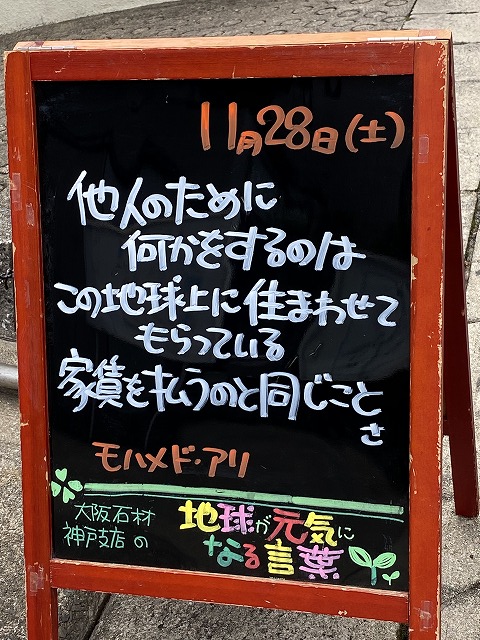 11月28日(土)
他人のために
何かをするのは
この地球上に住まわせて
もらっている
家賃を払うのと同じこと
さ
モハメド・アリ
大阪石材
神戸支店の
地球が元気に
なる言葉